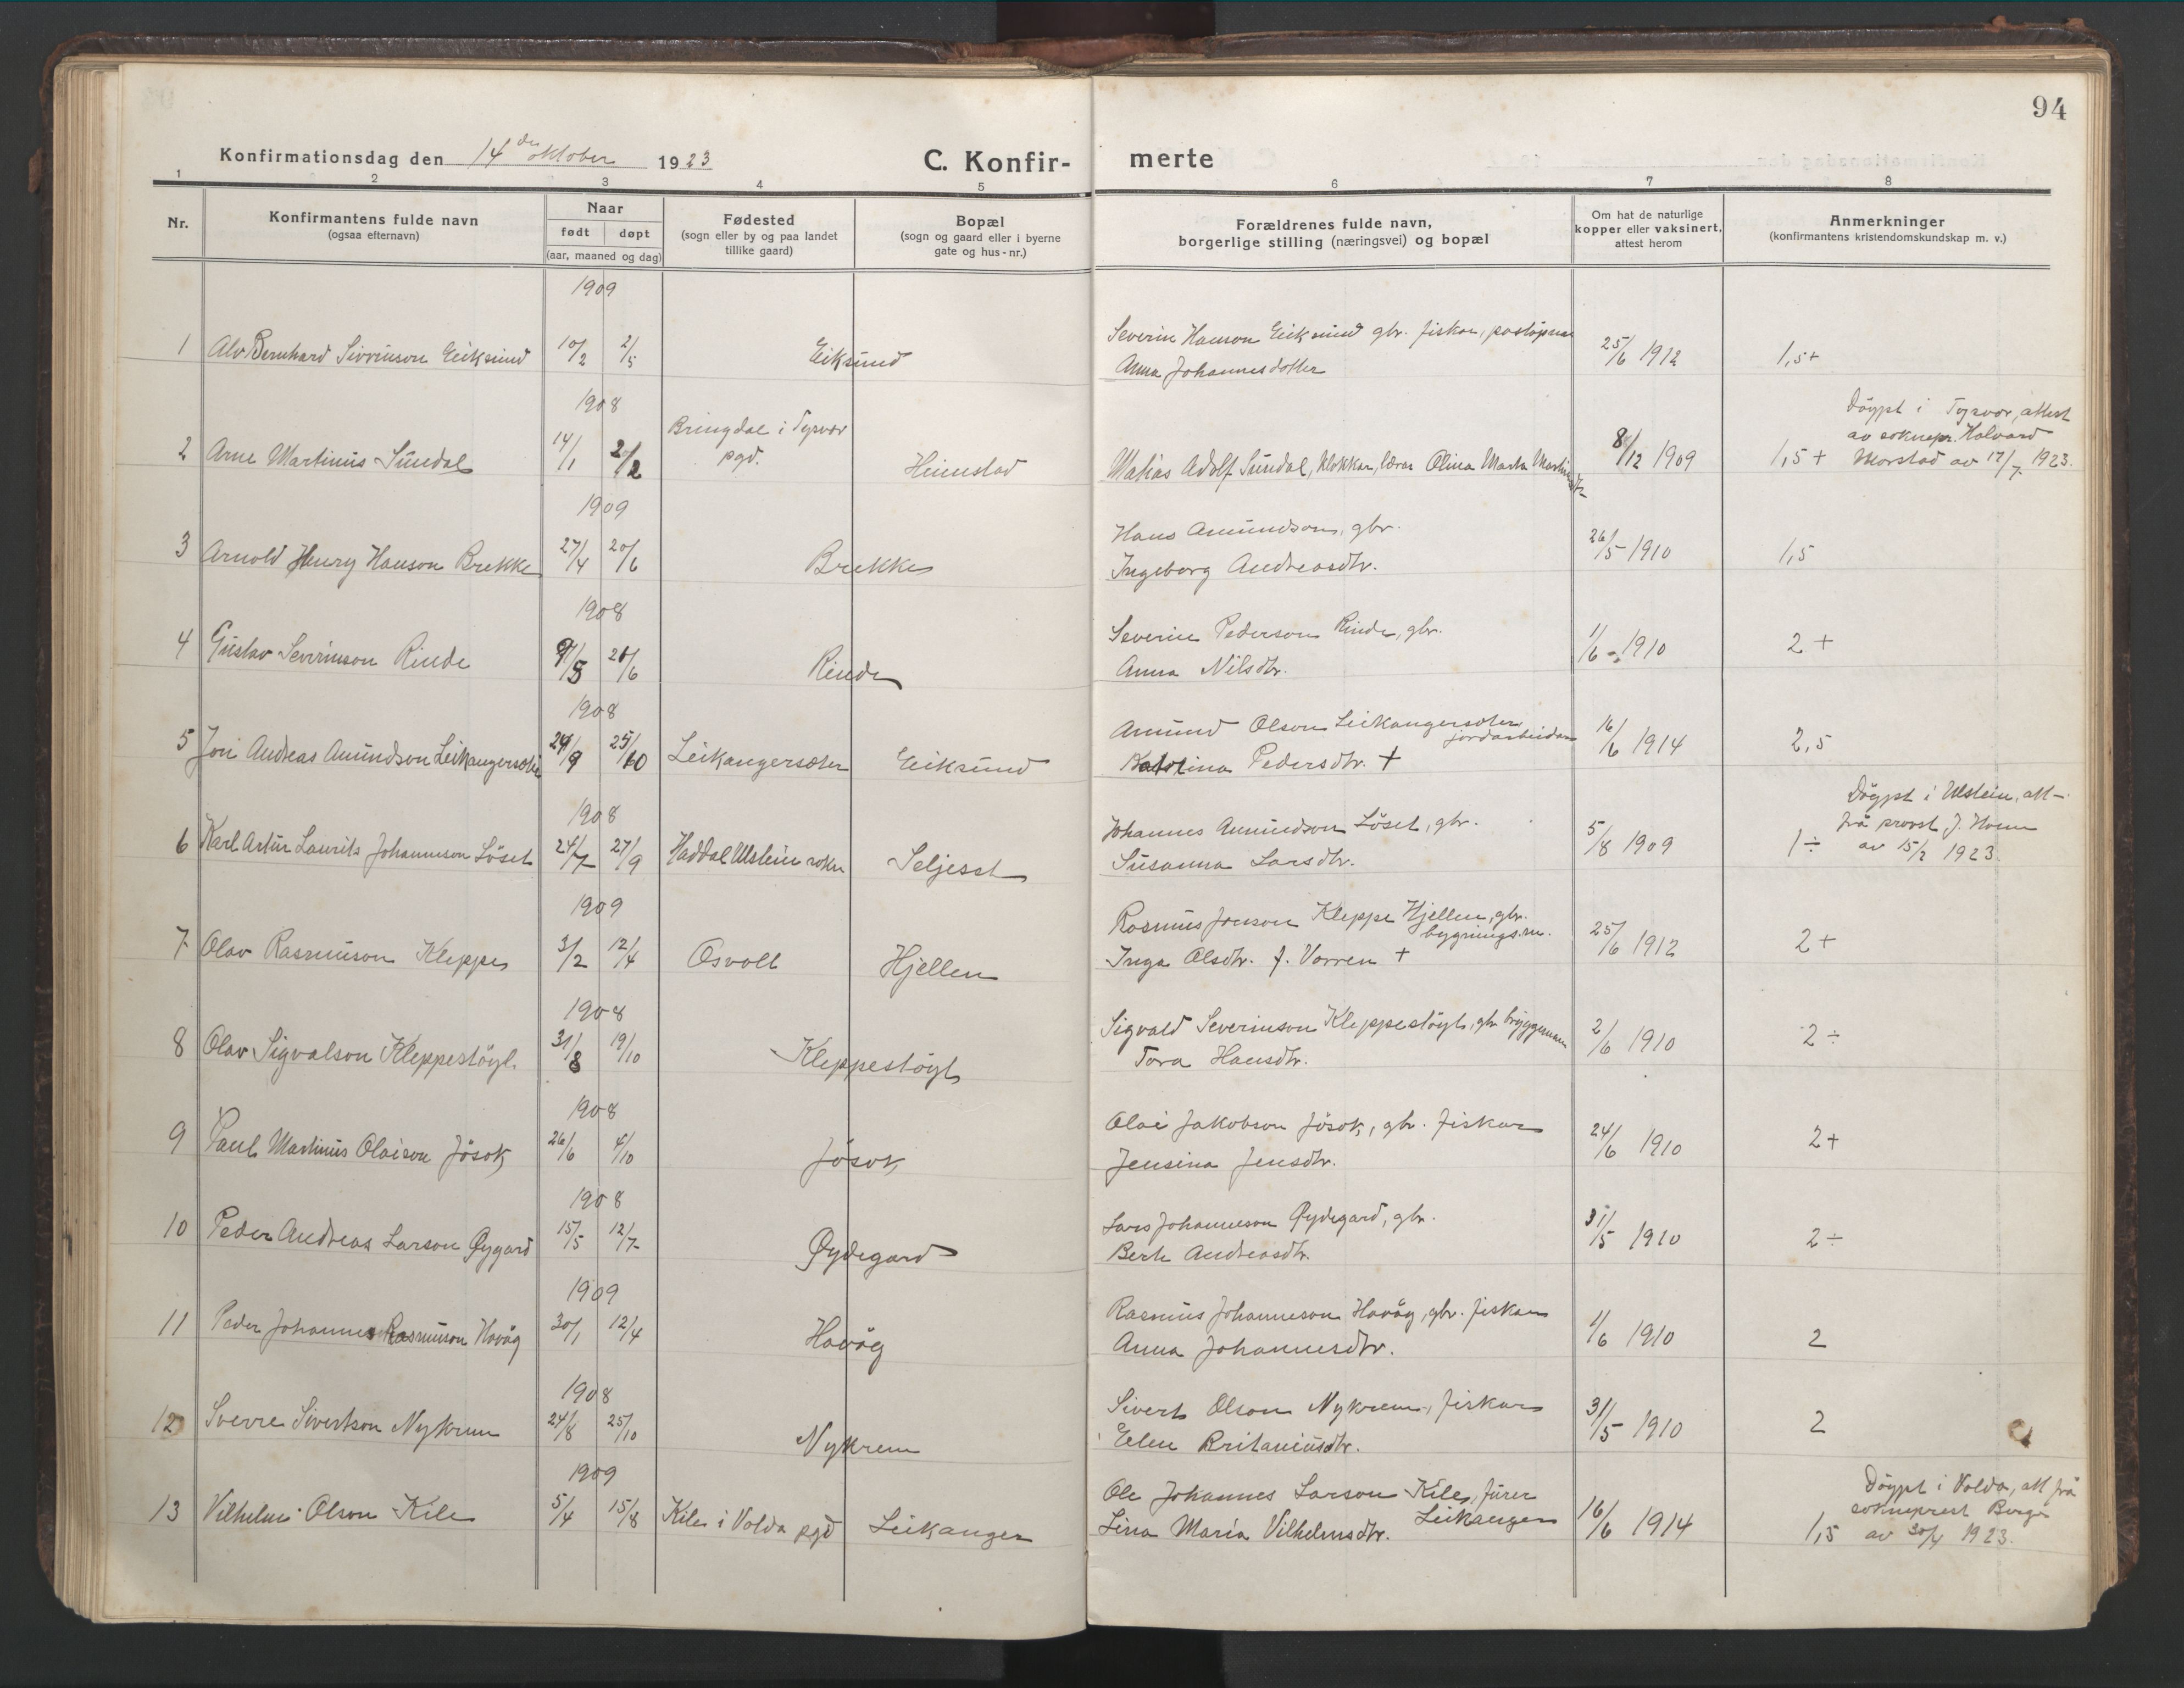 94
Konfirmationsdag den 14de oktober 1923
C. Konfir-
merte
1 2 3 4 5 6 7 8
Nr.
Konfirmantens fulde navn
(ogsaa efternavn)
Naar
født døpt
(aar, maaned og dag)
Fødested
(sogn eller by og paa landet
tillike gaard)
Bopæl
(sogn og gaard eller i byerne
gate og hus-nr.)
Forældrenes fulde navn,
borgerlige stilling (næringsvei) og bopæl
Om hat de naturlige
kopper eller vaksinert,
attest herom
Anmerkninger
(konfirmantens kristendomskundskap m. v.)
1909
Severin Hanson Eiksund gbr. fiskar, postopnar
1 Alv Bernhard Sivrinson Eiksund 10/2 2/5 Eiksund 25/6 1912 1,5+
Anna Johannesdotter
1908
Bringdal i Tysvor
pgd.
Døypt i Tysvor, attest
av soknepr. Halvard
2 Arne Martinus Sundal 14/1 2/2 Heimstad Matias Adolf Sundal, klokkar, lærar Olina Marta Martinsdtr 8/12 1909 1,5+ Morstad av 17/7 1923.
1909
Hans Amundson, gbr.
3 Arnold Henry Hanson Brekke 27/4 20/6 Brekke 26/5 1910 1,5
Ingeborg Andreasdtr.
1908
Severin Pederson Rinde, gbr.
4 Gustav Severinson Rinde /5 21/6 Rinde 1/6 1910 2+
Anna Nilsdtr.
1908
Amund Olson Leikangersæter
jordarbeidar
5 Jon Andreas Amundson Leikangersæter 24/9 25/10 Leikangersæter Eiksund 16/6 1914 2,5
Katrina Pedersdtr. +
1908
Døypt i Ulstein, att-
frå provst J. Hoem
Johannes Amundson Löset, gbr.
6 Karl Artur Laurits Johanneson Löset 24/7 27/9 Haddal Ulstein sokn Seljeset 5/8 1909 1÷ av 15/2 1923.
Susanna Larsdtr.
1909
Rasmus Jonson Kleppe Hjellen, gbr.
bygnings.m.
7 Olav Rasmuson Kleppe 3/2 12/4 Osvoll Hjellen 25/6 1912 2+
Inga Olsdtr. f. Vorren +
1908
Sigvald Severinson Kleppestöyl, gbr. bryggemann
8 Olav Sigvalson Kleppestöyl. 31/8 19/10 Kleppestöyl 2/6 1910 2÷
Tora Hansdtr.
1908
Olai Jakobson Jösok, gbr. fiskar
9 Paul Martinus Olaison Jösok 26/6 4/10 Jösok 24/6 1910 2+
Jensina Jensdtr.
1908
Lars Johanneson Øydegard, gbr.
10 Peder Andreas Larson Øygard 15/5 12/7 Øydegard 31/5 1910 2÷
Berte Andreasdtr.
1909
Rasmus Johanneson Havåg, gbr. fiskar
11 Peder Johannes Rasmuson Havåg 30/1 12/4 Havåg 1/6 1910 2
Anna Johannesdtr.
1908
Sivert Olson Nykrem, fiskar
12 Sverre Sivertson Nykrem 24/8 25/10 Nykrem 31/5 1910 2
Elen Britaniusdtr.
1909
Døypt i Volda, att frå
sokneprest Berge
Ole Johannes Larson Kile, furer
Leikanger
13 Vilhelm Olson Kile 5/4 15/8 Kile i Volda pgd Leikanger 16/6 1914 1,5 av 30/4 1923.
Lina Maria Vilhelmsdtr.